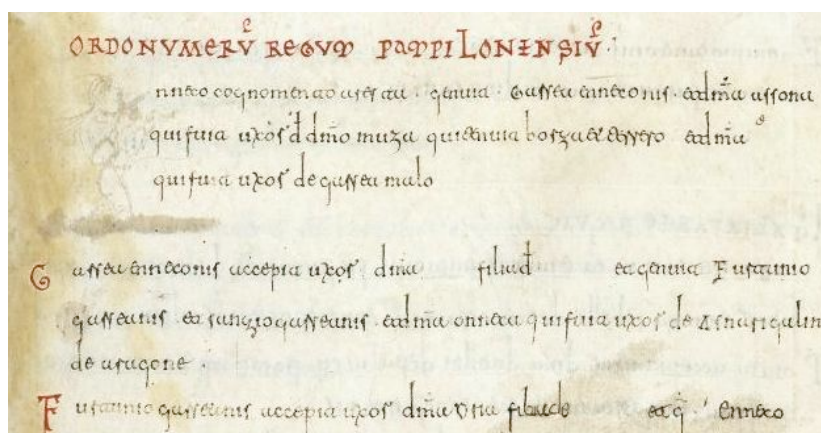 ORDO NUMERŪ REGUM PAMPILONENSIŪ.
nneco cognomento aresta. genuit. Garsea enneconis. et dm̄a assona
qui fuit uxor d̄ dm̄o muza qui tenuit borza et terrero et dm̄a
qui fuit uxor de garsea malo
Garsea enneconis accepit uxor dm̄a filia d̄ et genuit Furtunio
garseanis et sanzio garseanis et dm̄a onneca qui fuit uxor de Asnari galin
de aragone
Furtunio garseanis accepit uxor dm̄a Oria filia de et ḡ. Enneco